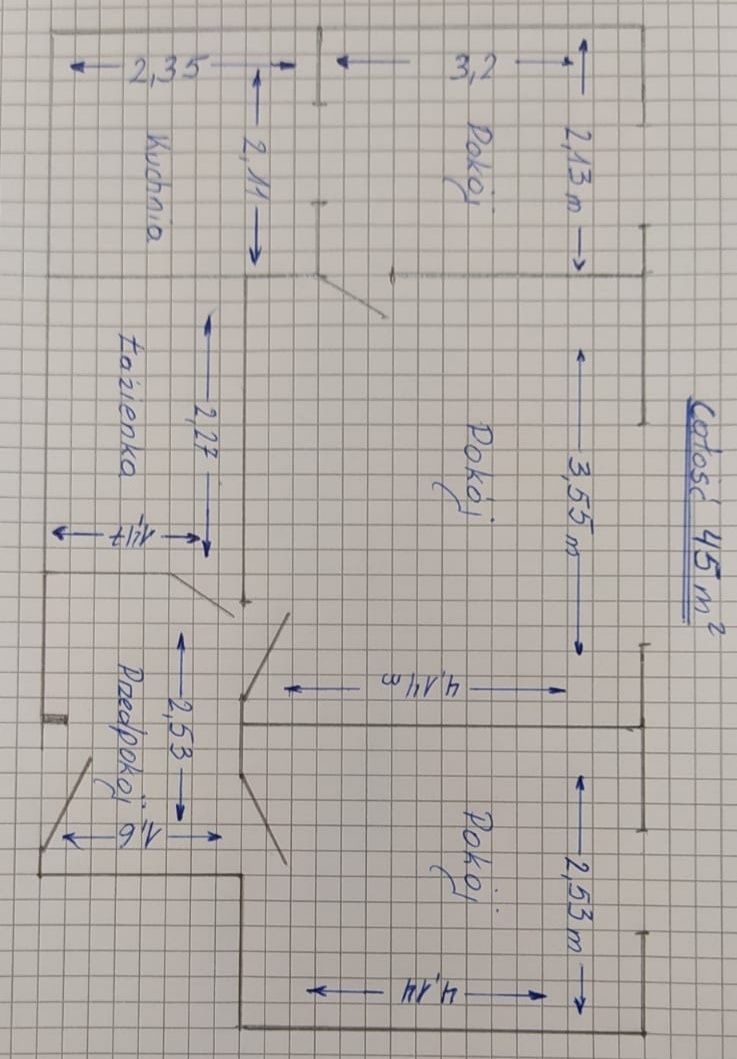 Całość 45 m²
2,35
3,2
2,13 m
2,11
Kuchnia
Pokój
Łazienka
2,27
1,17
Pokój
3,55 m
4,14 m
Przedpokój
2,53
1,6
Pokój
2,53 m
4,14